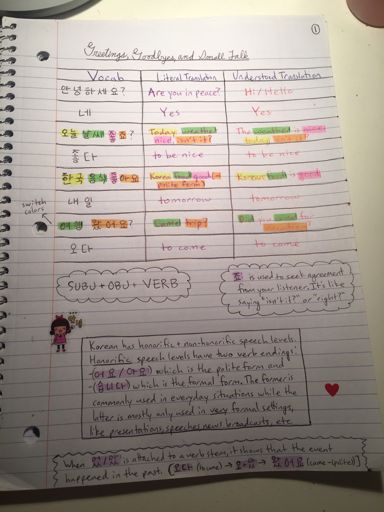 ①
Greetings, Goodbyes, and Small Talk
Vocab Literal Translation Understood Translation
안녕하세요? Are you in peace? Hi/Hello
네 Yes Yes
오늘 날씨 좋죠? Today weather nice isn't it? The weather is nice today isn't it?
좋다 to be nice to be nice
한국 음식 좋아요 Korea food good (-polite form) Korean food is good
내일 tomorrow tomorrow
switch colors
여행 왔어요? Came trip? Did you come for vacation?
오다 to come to come
SUBJ + OBJ + VERB
죠 is used to seek agreement
from your listener. It's like
saying "isn't it?" or "right?"
Korean has honorific + non-honorific speech levels.
Honorific speech levels have two verb endings:
-(어요/아요) which is the polite form and
-(습니다) which is the formal form. The former is
commonly used in everyday situations while the
latter is mostly only used in very formal settings,
like presentations, speeches, news broadcasts, etc.
When 었/았 is attached to a verb stem, it shows that the event
happened in the past. [오다 (to come) → 오+았 → 왔어요 (came-(polite))]